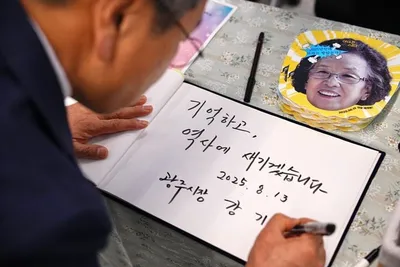 기억하고,
역사에 새기겠습니다
2025. 8. 13
광주시장 강 기